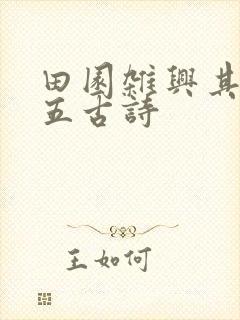 田園雜興其
五古詩
王如何